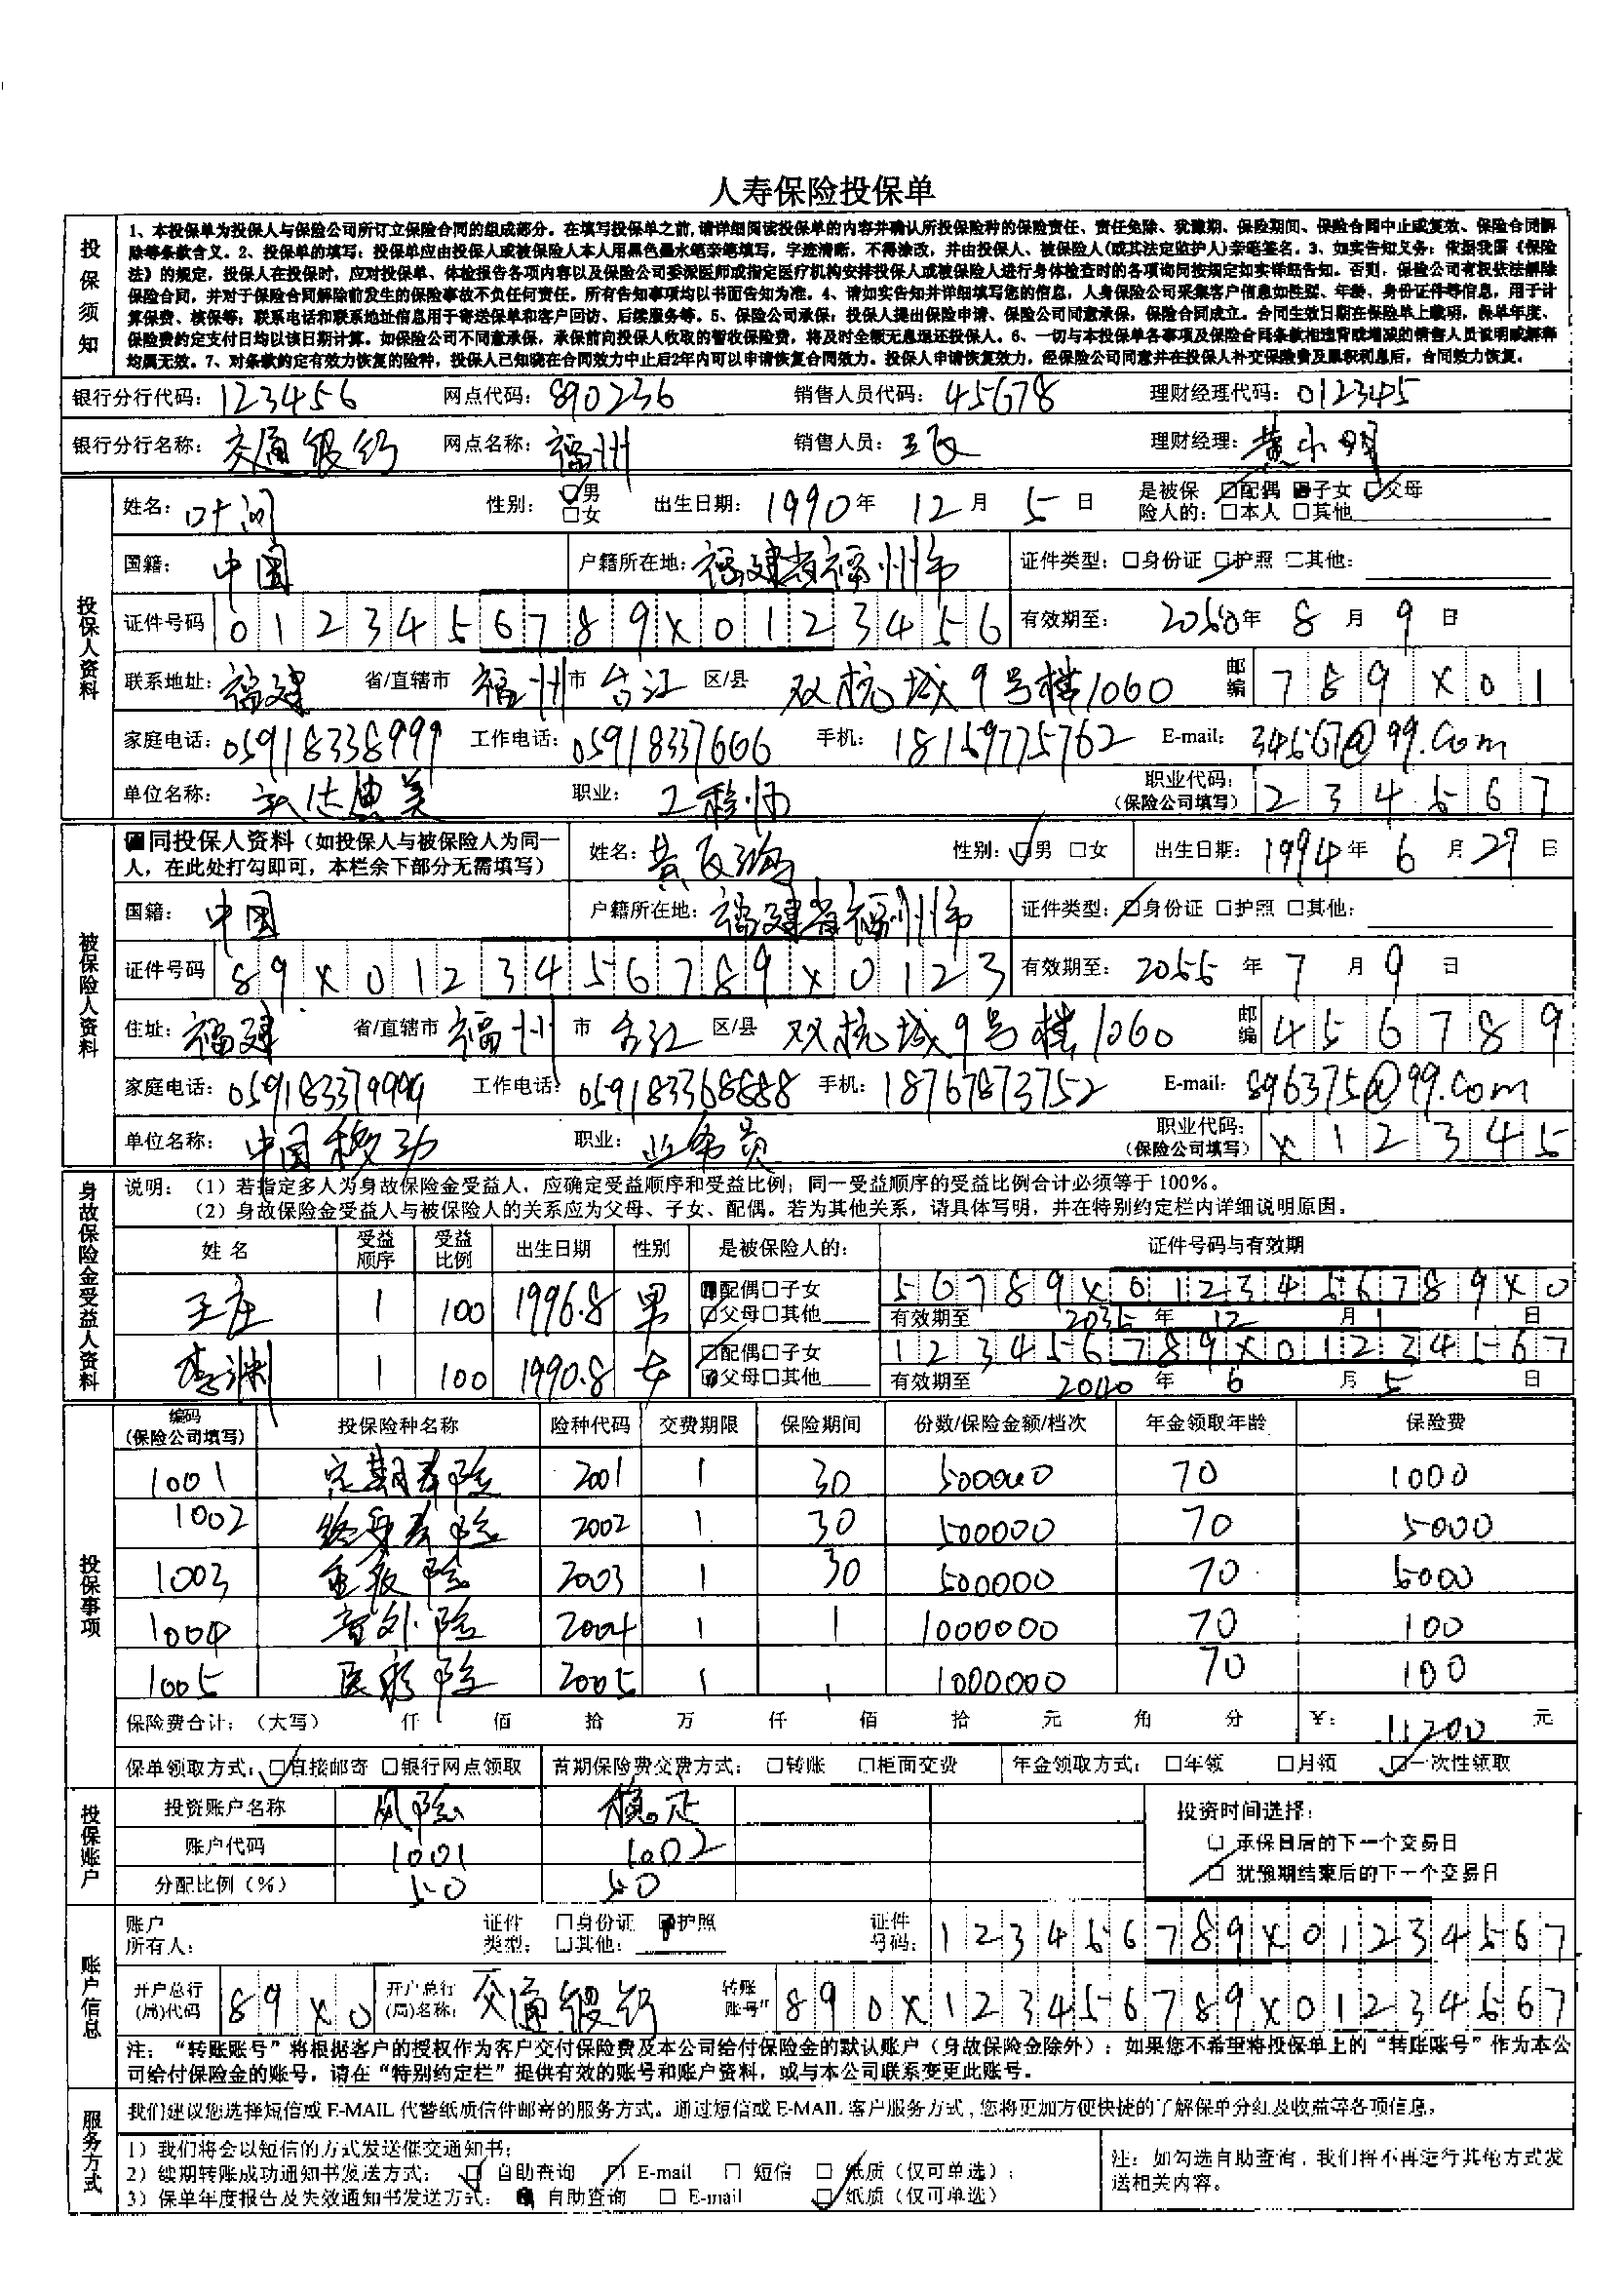 人寿保险投保单
投保须知
1、本投保单为投保人与保险公司所订立保险合同的组成部分。在填写投保单之前,请详细阅读投保单的内容并确认所投保险种的保险责任、责任免除、犹豫期、保险期间、保险合同中止或复效、保险合同解
除等条款含义。2、投保单的填写：投保单应由投保人或被保险人本人用黑色墨水笔亲笔填写，字迹清晰，不得涂改，并由投保人、被保险人(或其法定监护人)亲笔签名。3、如实告知义务：依据我国《保险
法》的规定，投保人在投保时，应对投保单、体检报告各项内容以及保险公司委派医师或指定医疗机构安排投保人或被保险人进行身体检查时的各项询问按规定如实详细告知。否则，保险公司有权依法解除
保险合同，并对于保险合同解除前发生的保险事故不负任何责任。所有告知事项均以书面告知为准。4、请如实告知并详细填写您的信息，人身保险公司采集客户信息如性别、年龄、身份证件等信息，用于计
算保费、核保等；联系电话和联系地址信息用于寄送保单和客户回访、后续服务等。5、保险公司承保：投保人提出保险申请、保险公司同意承保，保险合同成立。合同生效日期在保险单上载明，保单年度、
保险费约定支付日均以该日期计算。如保险公司不同意承保，承保前向投保人收取的暂收保险费，将及时全额无息退还投保人。6、一切与本投保单各事项及保险合同条款相违背或增减的销售人员说明或解释
均属无效。7、对条款约定有效力恢复的险种，投保人已知晓在合同效力中止后2年内可以申请恢复合同效力。投保人申请恢复效力，经保险公司同意并在投保人补交保险费及累积利息后，合同效力恢复。
银行分行代码：123456 网点代码：890236 销售人员代码：45678 理财经理代码：012345
银行分行名称：交通银行 网点名称：福州 销售人员：王飞 理财经理：黄小明
投保人资料
姓名：叶问 性别：☑男 □女 出生日期：1990年 12月 5日 是被保险人的：□配偶 ■子女 □父母 □本人 □其他
国籍：中国 户籍所在地：福建省福州市 证件类型：□身份证 □护照 □其他：
证件号码 0123456789X0123456 有效期至：2050年 8月 9日
联系地址：福建 省/直辖市 福州 市 台江 区/县 双杭城9号楼1060 邮编 789X01
家庭电话：05918338999 工作电话：05918337666 手机：18159775762 E-mail：34567@99.com
单位名称： 职业：工程师 职业代码：（保险公司填写）234567
被保险人资料
■同投保人资料（如投保人与被保险人为同一人，在此处打勾即可，本栏余下部分无需填写） 姓名： 性别：☑男 □女 出生日期：1994年 6月 27日
国籍：中国 户籍所在地：福建省福州市 证件类型：□身份证 □护照 □其他：
证件号码 89X0123456789X0123 有效期至：2055年 7月 9日
住址：福建 省/直辖市 福州 市 台江 区/县 双杭城9号楼1060 邮编 456789
家庭电话：059183379999 工作电话：059183368888 手机：18767873752 E-mail：896375@99.com
单位名称：中国移动 职业：业务员 职业代码：（保险公司填写）X12345
身故保险金受益人资料
说明：（1）若指定多人为身故保险金受益人，应确定受益顺序和受益比例；同一受益顺序的受益比例合计必须等于100%。
（2）身故保险金受益人与被保险人的关系应为父母、子女、配偶。若为其他关系，请具体写明，并在特别约定栏内详细说明原因。
姓名 受益顺序 受益比例 出生日期 性别 是被保险人的： 证件号码与有效期
王庄 1 100 1996.8 男 ■配偶□子女 □父母□其他 56789X0123456789X0
有效期至 2035年 12月 1日
李渊 1 100 1990.8 女 □配偶□子女 □父母□其他 123456789X01234567
有效期至 2040年 6月 5日
投保事项
编码（保险公司填写） 投保险种名称 险种代码 交费期限 保险期间 份数/保险金额/档次 年金领取年龄 保险费
1001 定期寿险 2001 1 30 500000 70 1000
1002 终身寿险 2002 1 30 500000 70 5000
1003 重疾险 2003 1 30 500000 70 5000
1004 意外险 2004 1 1 1000000 70 100
1005 医疗险 2005 1 1 1000000 70 100
保险费合计：（大写） 仟 佰 拾 万 仟 佰 拾 元 角 分 ￥：11200 元
保单领取方式：☑直接邮寄 □银行网点领取 首期保险费交费方式：□转账 □柜面交费 年金领取方式：□年领 □月领 ☑一次性领取
投保账户
投资账户名称 风险 稳定 投资时间选择：
账户代码 1001 1002 □ 承保日后的下一个交易日
分配比例（%） 50 50 ☑ 犹豫期结束后的下一个交易日
账户信息
账户所有人： 证件类型：□身份证 ☑护照 □其他： 证件号码：123456789X01234567
开户总行(局)代码 89X0 开户总行(局)名称：交通银行 转账账号"890X123456789X01234567
注：“转账账号”将根据客户的授权作为客户交付保险费及本公司给付保险金的默认账户（身故保险金除外）；如果您不希望将投保单上的“转账账号”作为本公
司给付保险金的账号，请在“特别约定栏”提供有效的账号和账户资料，或与本公司联系变更此账号。
服务方式
我们建议您选择短信或 E-MAIL 代替纸质信件邮寄的服务方式。通过短信或 E-MAIL 客户服务方式，您将更加方便快捷的了解保单分红及收益等各项信息。
1）我们将会以短信的方式发送催交通知书；
2）续期转账成功通知书发送方式：☑ 自助查询 ☑ E-mail □ 短信 ☑ 纸质（仅可单选）；
3）保单年度报告及失效通知书发送方式：■ 自助查询 □ E-mail ☑ 纸质（仅可单选）
注：如勾选自助查询，我们将不再进行其他方式发
送相关内容。